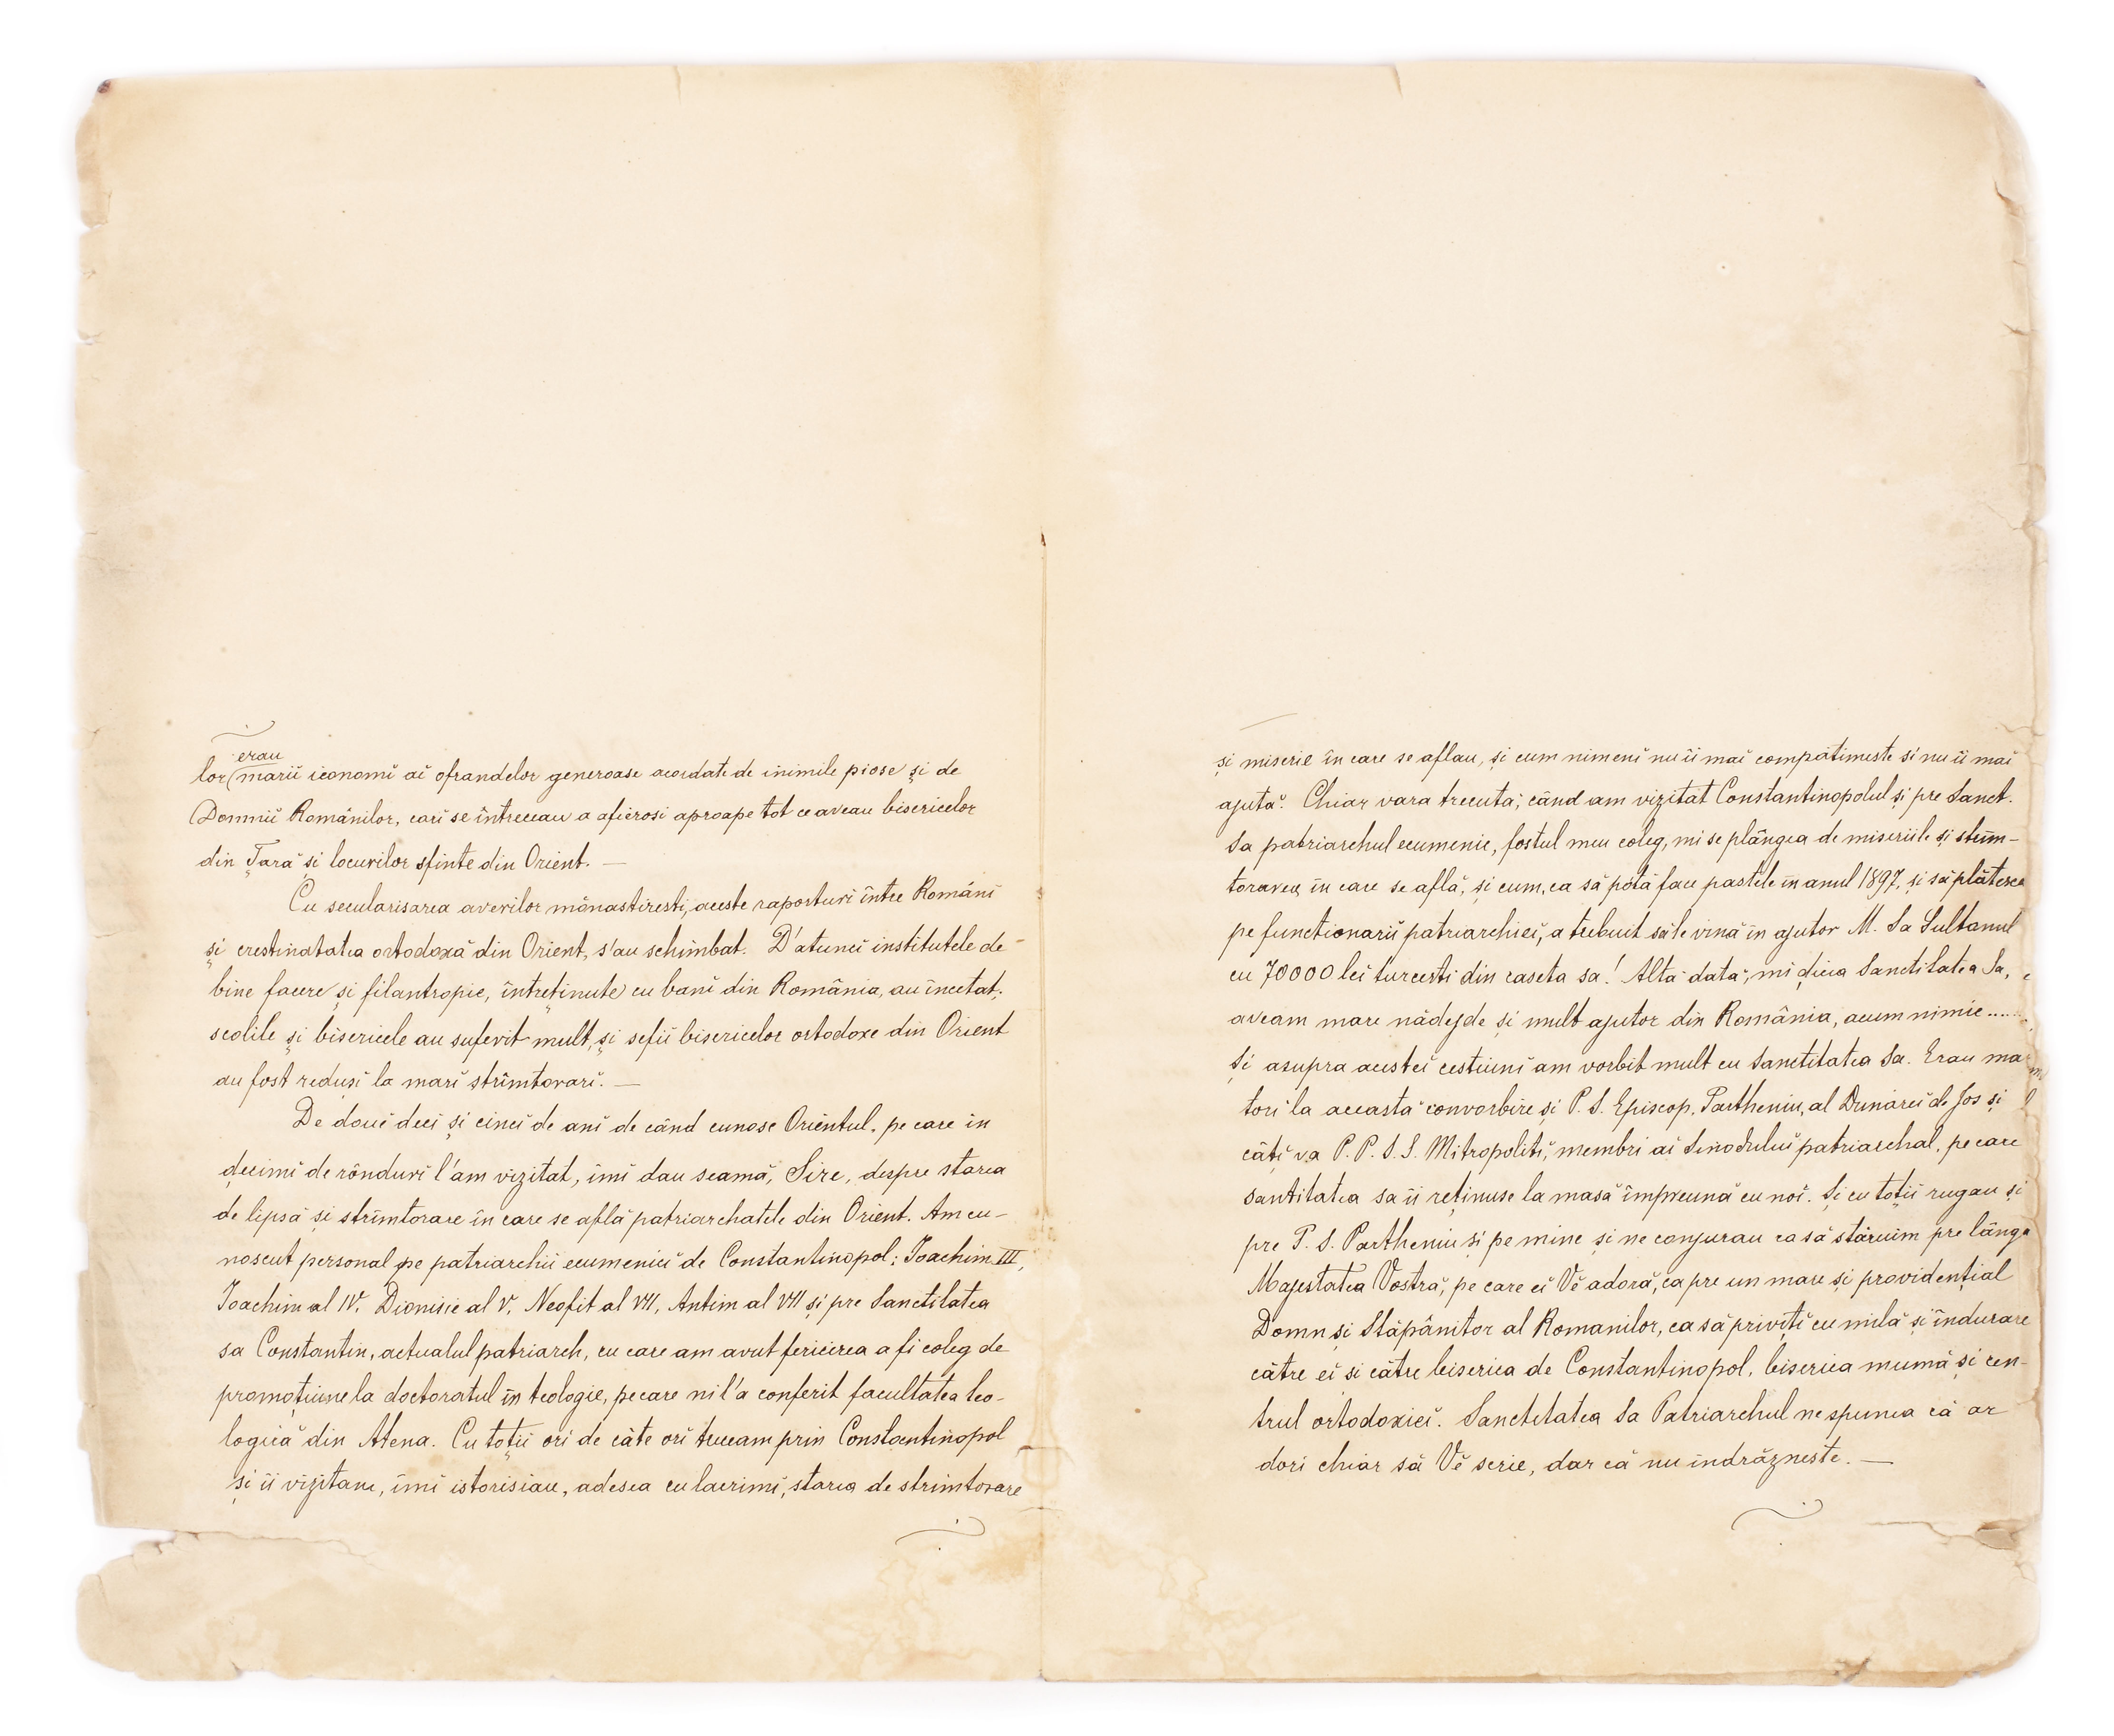 erau
lor (marii iconomi ai ofrandelor generoase acordate de inimile piose și de
Domnii Românilor, cari se întreceau a afierosi aproape tot ce aveau bisericelor
din Țară și locurilor sfinte din Orient. —
Cu secularisarea averilor mônastiresti, aceste raporturi între Români
și crestinatatea ortodoxă din Orient, s'au schimbat. D'atunci institutele de
bine facere și filantropie, întreținute cu bani din România, au încetat;
scolile și bisericele au suferit mult, și sefii bisericelor ortodoxe din Orient
au fost reduși la mari strîmtorari. —
De douĕ deci și cinci de ani de când cunosc Orientul, pe care in
decimi de rônduri l'am vizitat, îmi dau seamă, Sire, despre starea
de lipsă și strîmtorare în care se află patriarchatele din Orient. Am cu-
noscut personal pe patriarchii ecumenici de Constantinopol: Joachim III,
Joachim al IV, Dionisie al V, Neofit al VII, Antim al VII și pre Sanctitatea
sa Constantin, actualul patriarch, cu care am avut fericirea a fi coleg de
promoțiune la doctoratul în teologie, pe care ni l'a conferit facultatea teo-
logică din Atena. Cu toții ori de câte ori treceam prin Constantinopol
și ii vizitam, îmi istorisiau, adesea cu lacrimi, starea de strimtorare
și miserie în care se aflau, și cum nimeni nu ii mai compătimeste si nu ii mai
ajută. Chiar vara trecută, când am vizitat Constantinopolul și pre Sanct.
Sa patriarchul ecumenic, fostul meu coleg, mi se plângea de miseriile și strîm-
torarea, în care se află, și cum, ca să pótă face pastele in anul 1897, și să plătesca
pe functionarii patriarchiei, a trebuit să le vină în ajutor M. Sa Sultanul
cu 70000 lei turcesti din caseta sa! Altă dată, mi dicia Sanctitatea Sa,
aveam mare nădejde și mult ajutor din România, acum nimic.....
Și asupra acestei cestiuni am vorbit mult cu Sanctitatea Sa. Erau mar
tori la aceasta convorbire și P. S. Episcop. Partheniu, al Dunărei de Jos și
câți va P. P. S. S. Mitropoliti, membri ai Sinodului patriarchal, pe care
santitatea sa ii reținuse la masă împreună cu noi. Și cu toții rugau și
pre P. S. Partheniu și pe mine și ne conjurau ca să stăruim pre lângă
Majestatea Vostră, pe care ei Vĕ adoră, ca pre un mare și providențial
Domn și Stăpânitor al Romanilor, ca să priviți cu milă și îndurare
către ei si către biserica de Constantinopol, biserica mumă și cen-
trul ortodoxiei. Sanctitatea Sa Patriarchul ne spunea că ar
dori chiar să Vĕ scrie, dar că nu indrăzneste. —